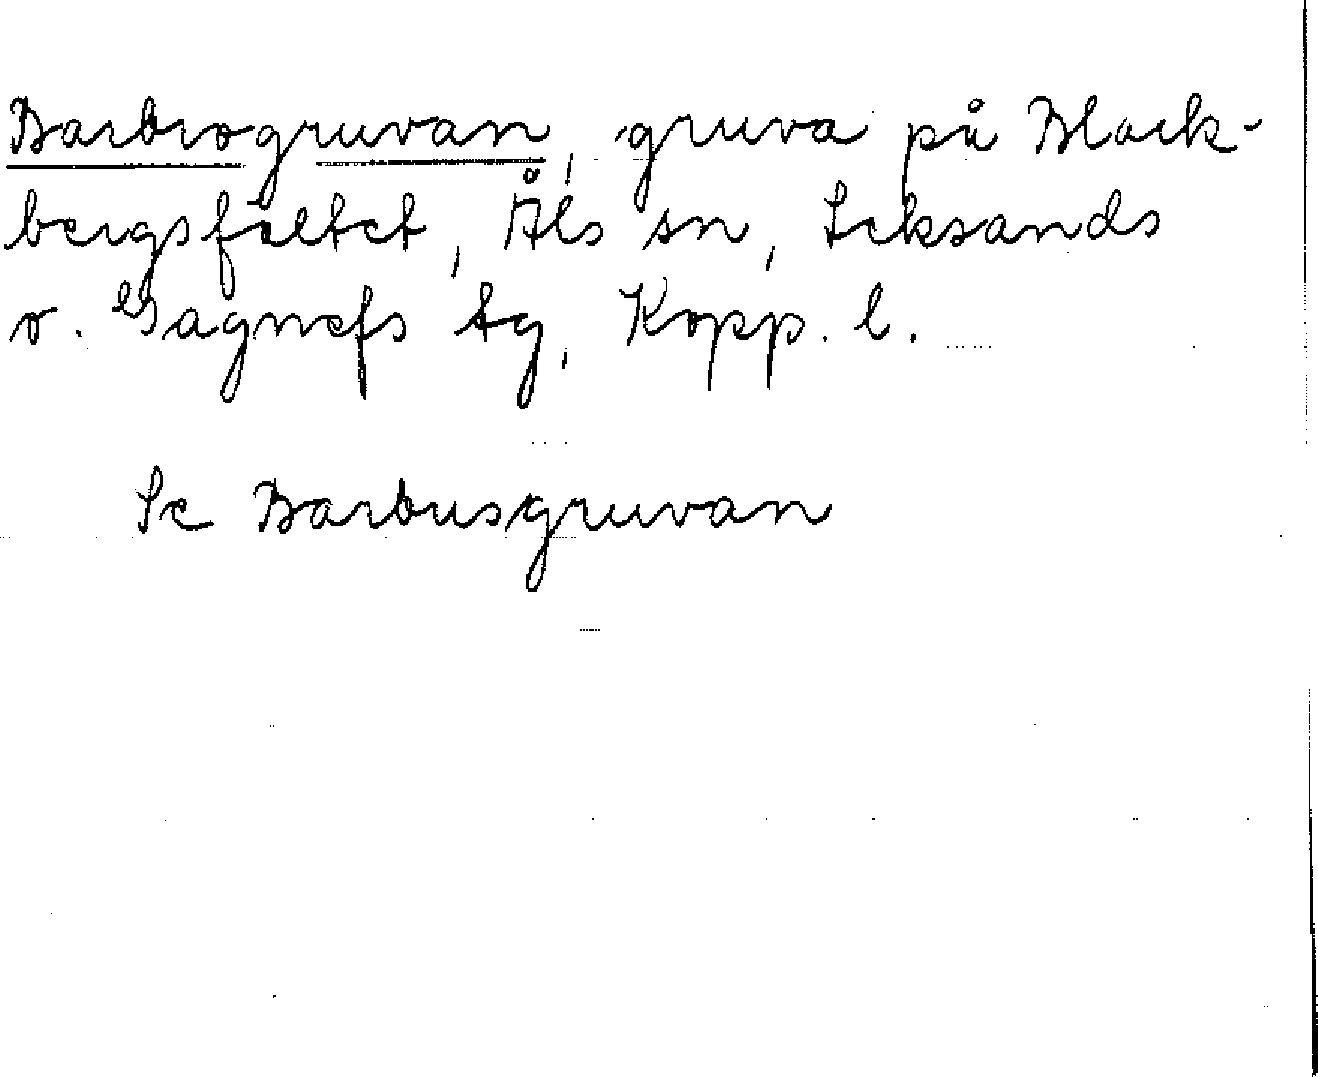 Barbrogruvan, gruva på Black-
bergsfältet, Åls sn, Leksands
o. Gagnefs tg, Kopp. l.
Se Barbusgruvan